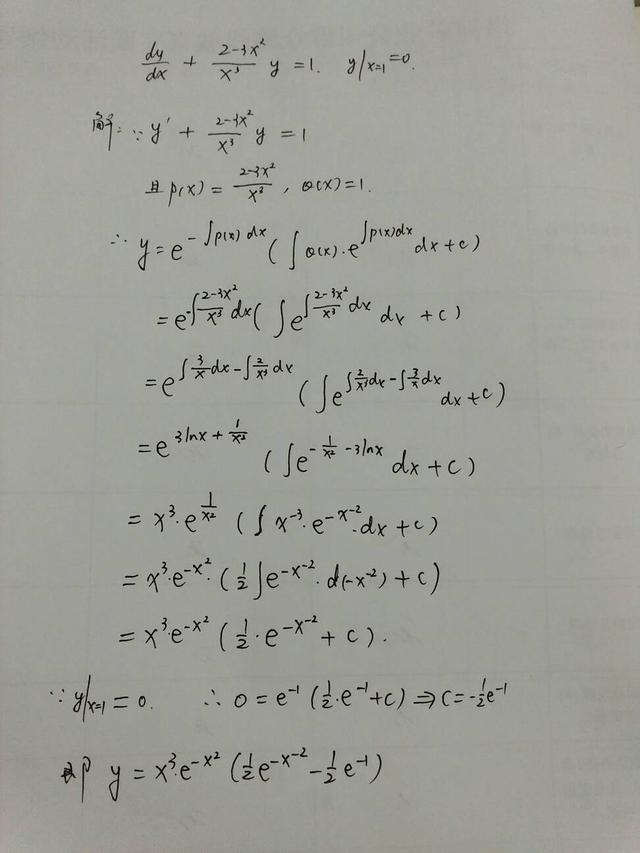 dy/dx + (2-3x²)/x³ y = 1. y|x=1 = 0.
解: ∵ y' + (2-3x²)/x³ y = 1
且 p(x) = (2-3x²)/x³, Q(x)=1.
∴ y = e^(-∫p(x)dx) (∫Q(x)·e^(∫p(x)dx) dx + c)
= e^(-∫(2-3x²)/x³ dx) (∫e^(∫(2-3x²)/x³ dx) dx + c)
= e^(∫3/x dx - ∫2/x³ dx) (∫e^(∫2/x³ dx - ∫3/x dx) dx + c)
= e^(3lnx + 1/x²) (∫e^(-1/x² - 3lnx) dx + c)
= x³·e^(1/x²) (∫x⁻³·e^(-x⁻²)·dx + c)
= x³·e^(-x²) (1/2∫e^(-x⁻²)·d(-x⁻²) + c)
= x³·e^(-x²) (1/2·e^(-x⁻²) + c).
∵ y|x=1 = 0. ∴ 0 = e⁻¹ (1/2·e⁻¹ + c) ⇒ c = -1/2e⁻¹
即 y = x³·e^(-x²) (1/2e^(-x⁻²) - 1/2e⁻¹)